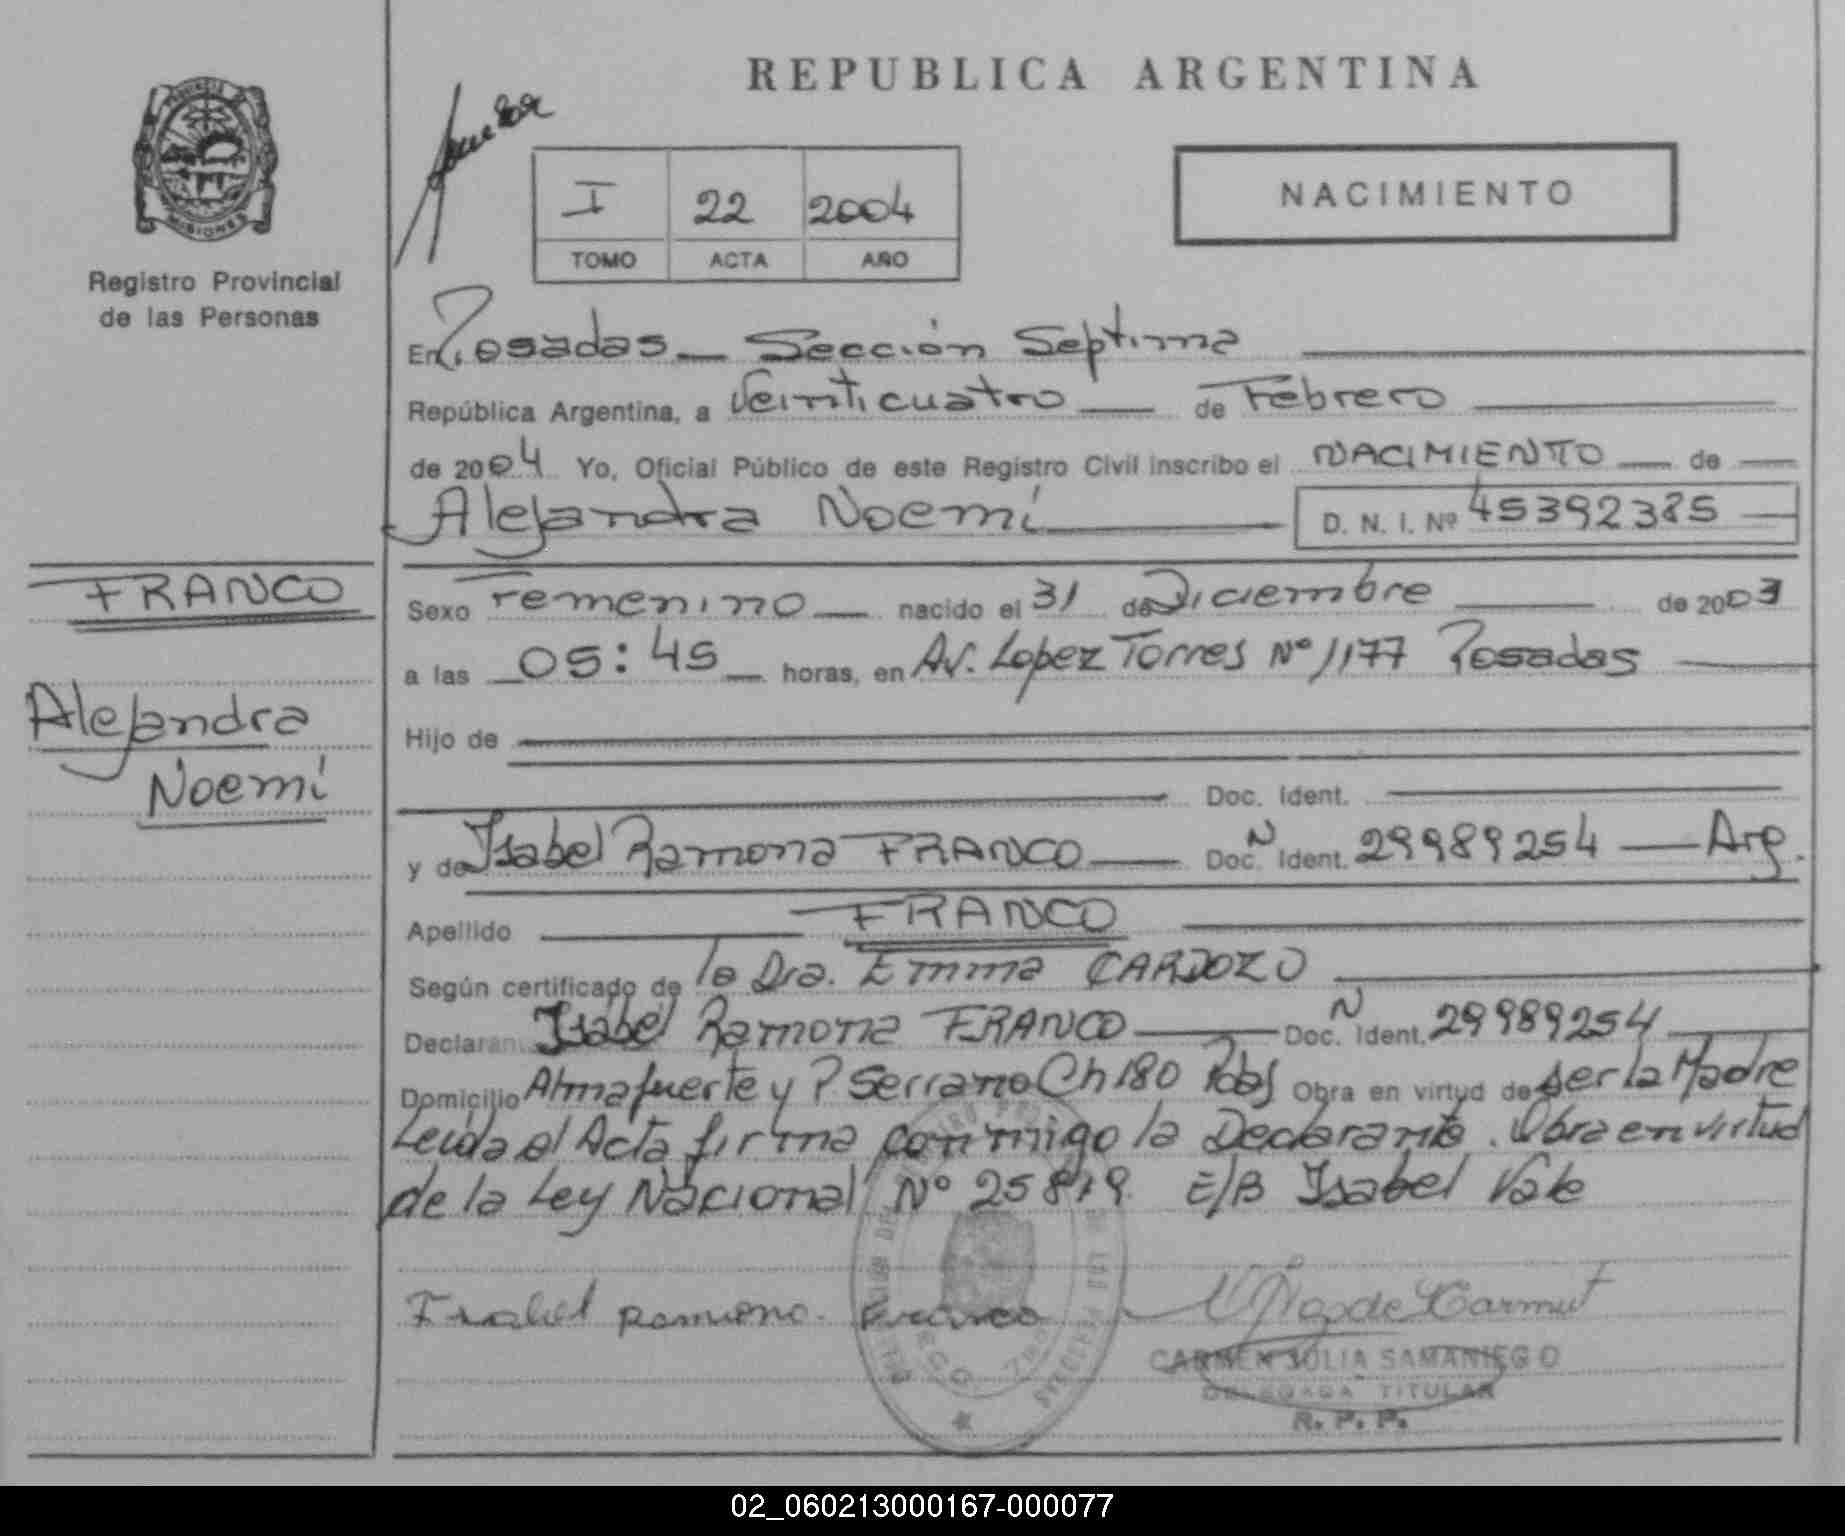 REPUBLICA ARGENTINA
PROVINCIA DE
MISIONES
Registro Provincial
de las Personas
I 22 2004
TOMO ACTA AÑO
NACIMIENTO
En Posadas - Sección Septima
República Argentina, a Veinticuatro de Febrero
de 2004 Yo, Oficial Público de este Registro Civil inscribo el NACIMIENTO de
Alejandra Noemí D. N. I. Nº 45392385
FRANCO
Alejandra
Noemí
Sexo Femenino nacido el 31 de Diciembre de 2003
a las 05:45 horas, en Av. Lopez Torres Nº 1177 Posadas
Hijo de
Doc. Ident.
y de Isabel Ramona FRANCO Doc. N Ident. 29989254 Arg.
Apellido FRANCO
Según certificado de la Dra. Emma CARDOZO
Declarante Isabel Ramona FRANCO Doc. N Ident. 29989254
Domicilio Almafuerte y P. Serrano Ch 180 Pdas Obra en virtud de ser la Madre
Leida el Acta firma conmigo la Declarante. Obra en virtud
de la Ley Nacional Nº 25819. E/B Isabel Vale
Isabel Ramona Franco
CARMEN JULIA SAMANIEGO
DELEGADA TITULAR
R. P. P.
02_060213000167-000077